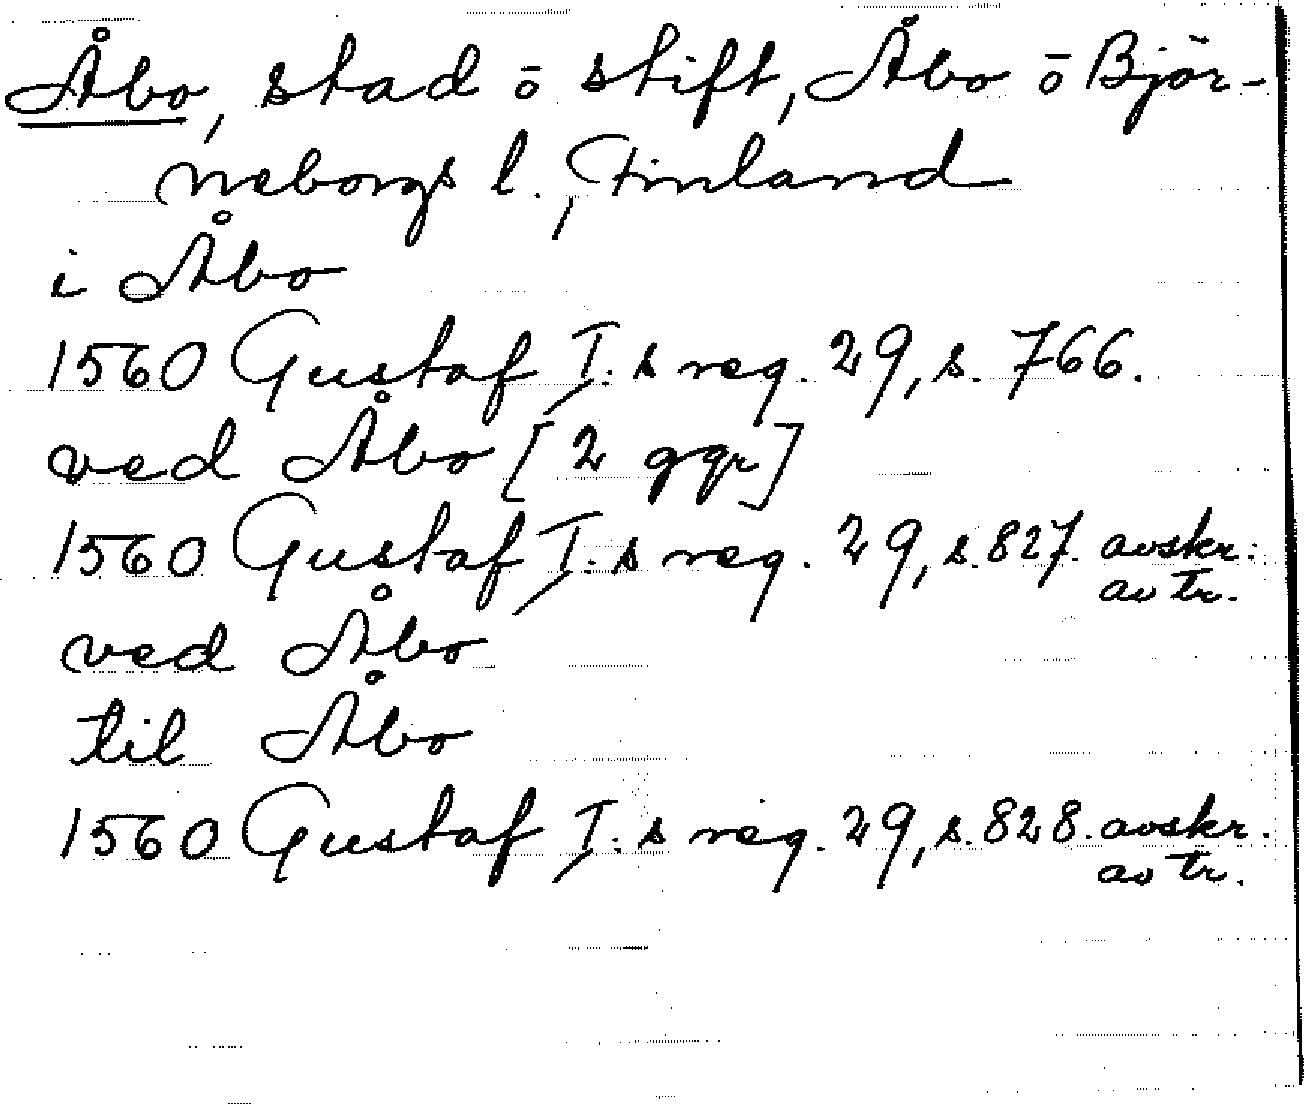 Åbo, stad ō stift, Åbo ō Björ-
neborgs l., Finland
i Åbo
1560 Gustaf I:s reg. 29, s. 766.
ved Åbo [2 ggr]
1560 Gustaf I:s reg. 29, s. 827. avskr.
av tr.
ved Åbo
til Åbo
1560 Gustaf I:s reg. 29, s. 828. avskr.
av tr.